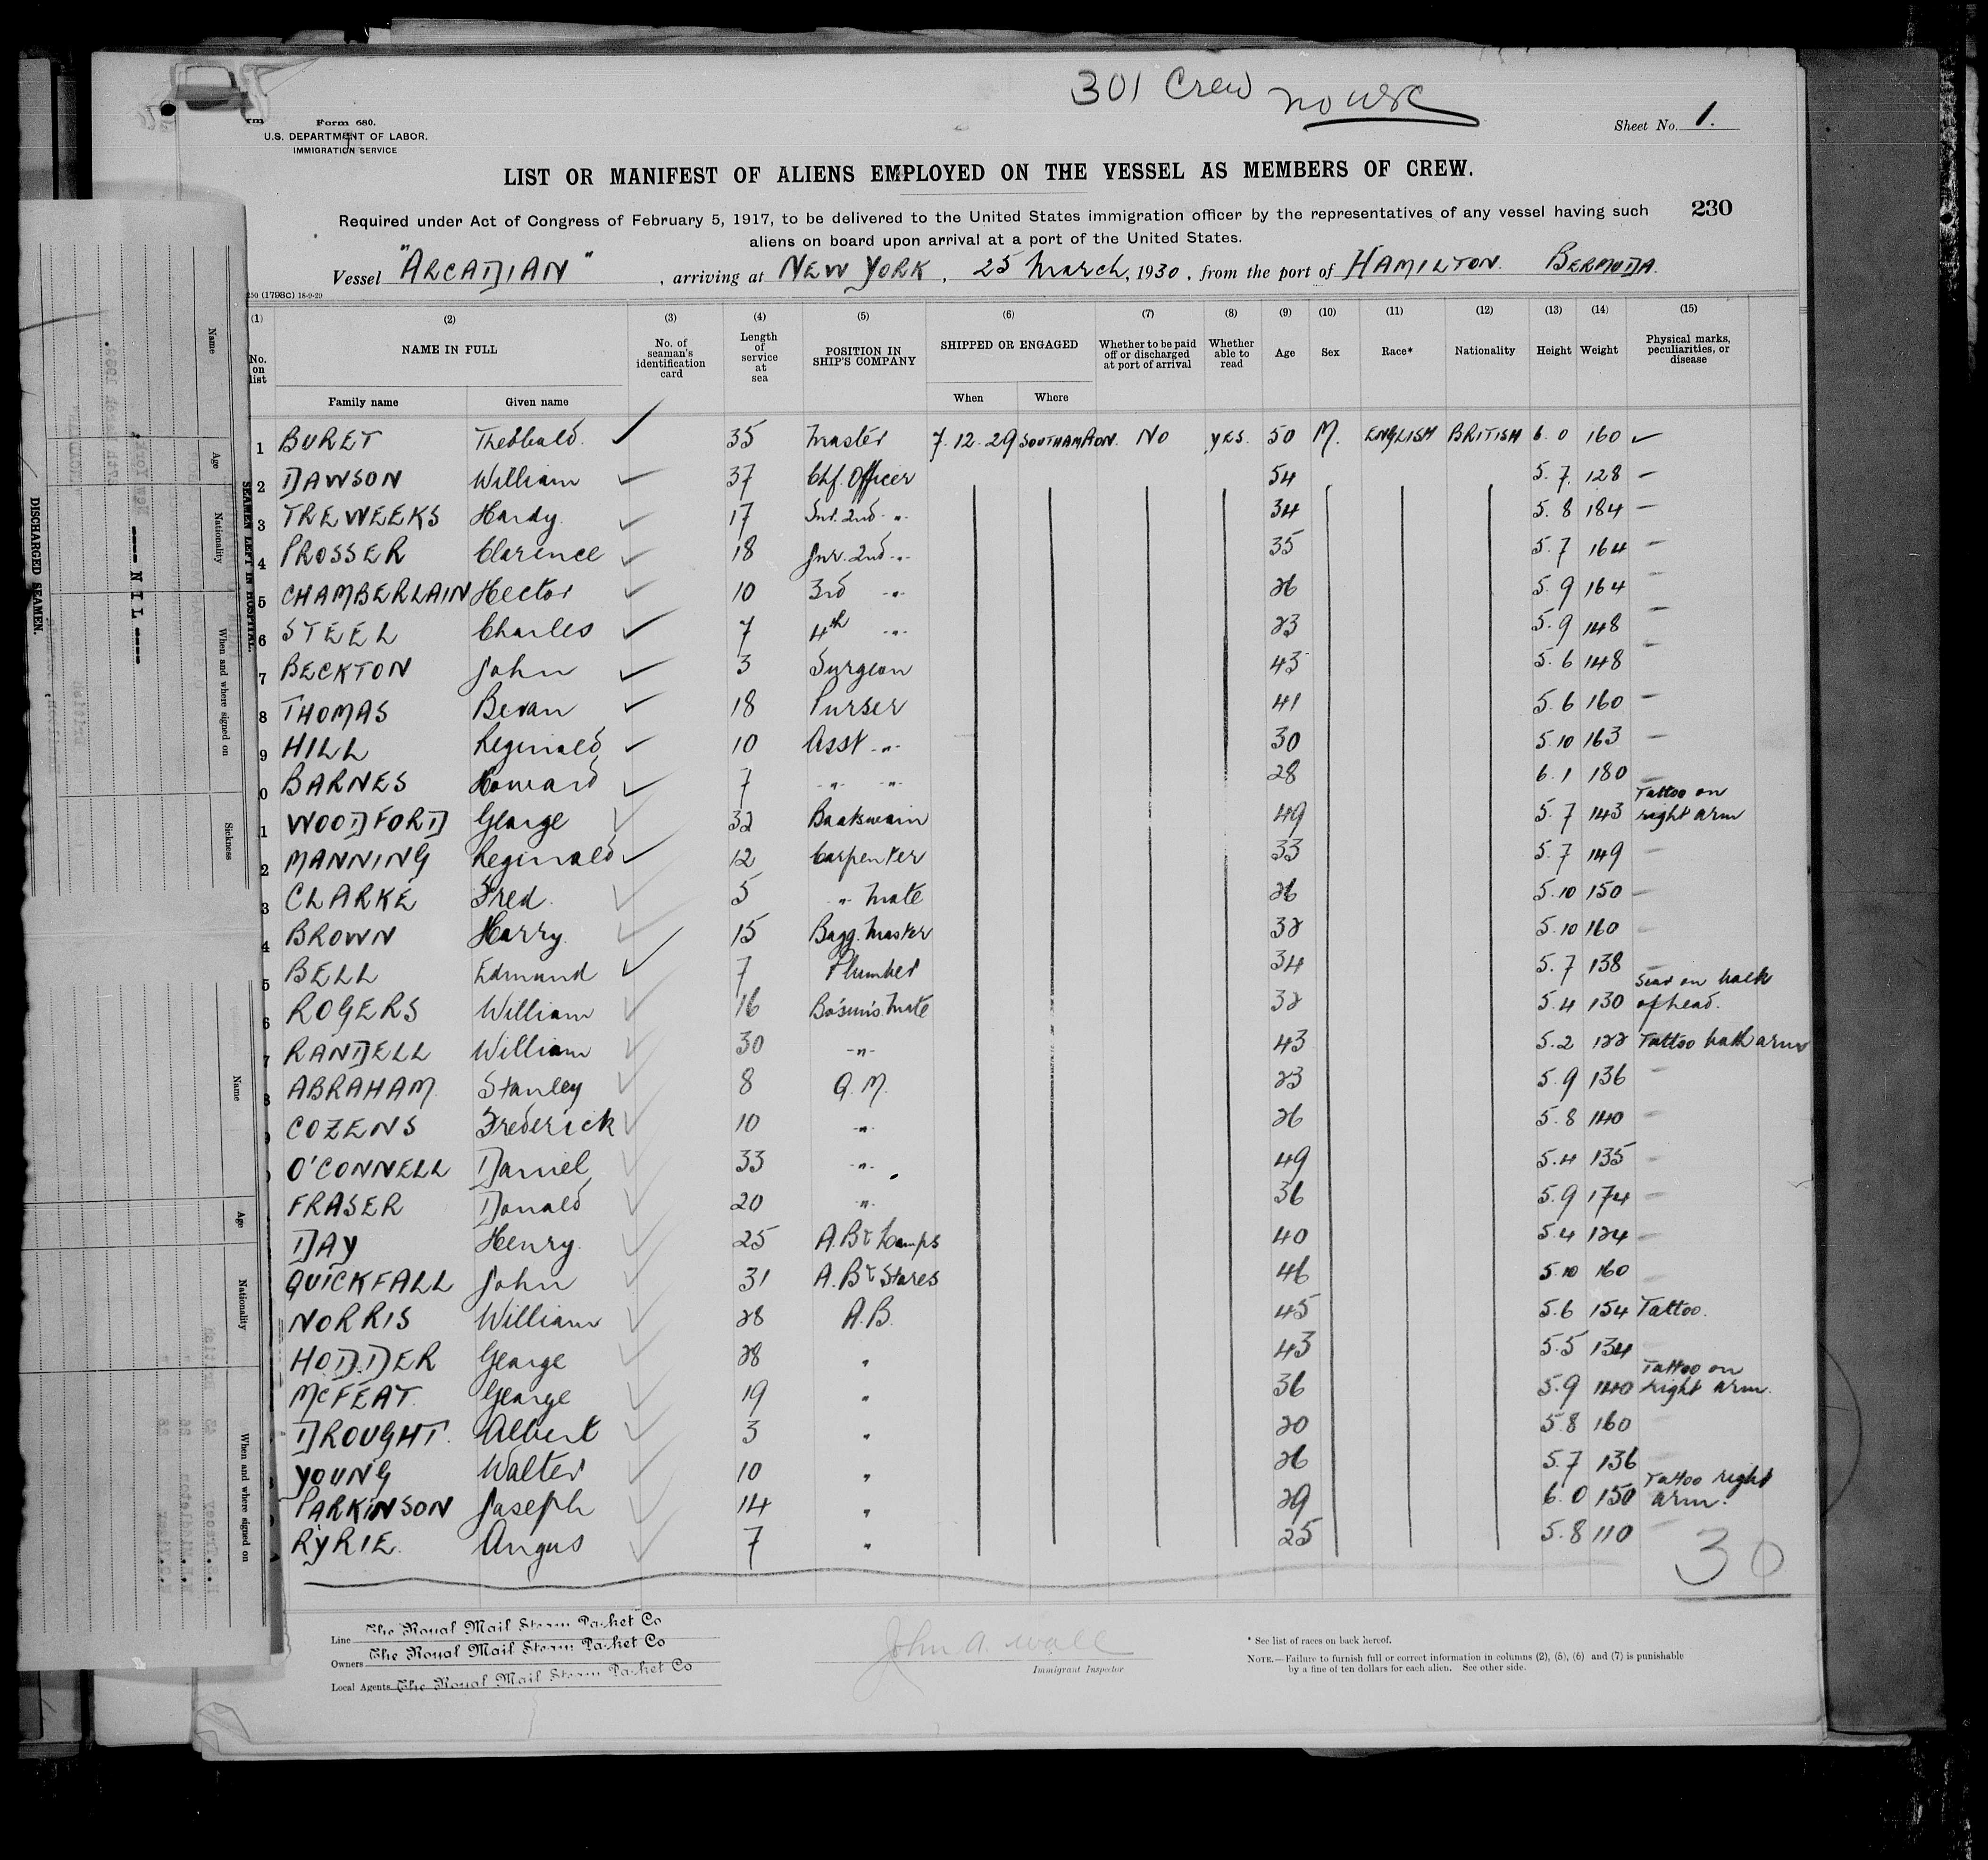 301 Crew no use
Form 680.
U.S. DEPARTMENT OF LABOR.
IMMIGRATION SERVICE
Sheet No. 1.
LIST OR MANIFEST OF ALIENS EMPLOYED ON THE VESSEL AS MEMBERS OF CREW.
Required under Act of Congress of February 5, 1917, to be delivered to the United States immigration officer by the representatives of any vessel having such
230
aliens on board upon arrival at a port of the United States.
Vessel "ARCADIAN", arriving at NEW YORK, 25 March, 1930, from the port of HAMILTON. BERMUDA.
250 (1798C) 18-9-29
(1) (2) (3) (4) (5) (6) (7) (8) (9) (10) (11) (12) (13) (14) (15)
No. on list NAME IN FULL No. of seaman's identification card Length of service at sea POSITION IN SHIP'S COMPANY SHIPPED OR ENGAGED Whether to be paid off or discharged at port of arrival Whether able to read Age Sex Race* Nationality Height Weight Physical marks, peculiarities, or disease
Family name Given name When Where
1 BURET Theobald. 35 Master 7.12.29 SOUTHAMPTON. NO YES. 50 M. ENGLISH BRITISH 6.0 160
2 DAWSON William 37 Chf. Officer 54 5.7. 128 —
3 TREWEEKS Hardy. 17 Snr. 2nd -"- 34 5.8 184 —
4 PROSSER Clarence 18 Jnr. 2nd -"- 35 5.7 164 —
5 CHAMBERLAIN Hector 10 3rd -"- 26 5.9 164 —
6 STEEL Charles 7 4th -"- 23 5.9 148 —
7 BECKTON John 3 Surgeon 43 5.6 148 —
8 THOMAS Bevan 18 Purser 41 5.6 160 —
9 HILL Reginald 10 Asst -"- 30 5.10 163 —
0 BARNES Howard 7 -"- -"- 28 6.1 180 —
1 WOODFORD George 32 Boatswain 49 5.7 143 Tattoo on right arm
2 MANNING Reginald 12 Carpenter 33 5.7 149 —
3 CLARKE Fred. 5 -"- Mate 26 5.10 150 —
4 BROWN Harry. 15 Bagg. Master 32 5.10 160 —
5 BELL Edmund 7 Plumber 34 5.7 138
6 ROGERS William 16 Bosun's Mate 32 5.4 130 Scar on back of head.
7 RANDELL William 30 -"- 43 5.2 122 Tattoo both arms
8 ABRAHAM. Stanley 8 Q.M. 23 5.9 136 —
COZENS Frederick 10 -"- 26 5.8 140 —
O'CONNELL Daniel 33 -"- 49 5.4 135 —
FRASER Donald 20 -"- 36 5.9 174 —
DAY Henry. 25 A.B & Lamps 40 5.4 124 —
QUICKFALL John 31 A.B & Stores 46 5.10 160
NORRIS William 28 A.B. 45 5.6 154 Tattoo.
HODDER George 28 " 43 5.5 134
McFEAT. George 19 " 36 5.9 140 Tattoo on right arm.
DROUGHT. Albert 3 " 20 5.8 160
YOUNG Walter 10 " 26 5.7 136
PARKINSON Joseph 14 " 29 6.0 150 Tattoo right arm.
RYRIE. Angus 7 " 25 5.8 110
30
Line The Royal Mail Steam Packet Co
Owners The Royal Mail Steam Packet Co
Local Agents The Royal Mail Steam Packet Co
John A. Wall
Immigrant Inspector
* See list of races on back hereof.
NOTE.—Failure to furnish full or correct information in columns (2), (5), (6) and (7) is punishable
by a fine of ten dollars for each alien. See other side.
DISCHARGED SEAMEN.
---- NIL ----
Name
Age
Nationality
When and where signed on
Sickness
SEAMEN LEFT IN HOSPITAL.
Name
Age
Nationality
When and where signed on